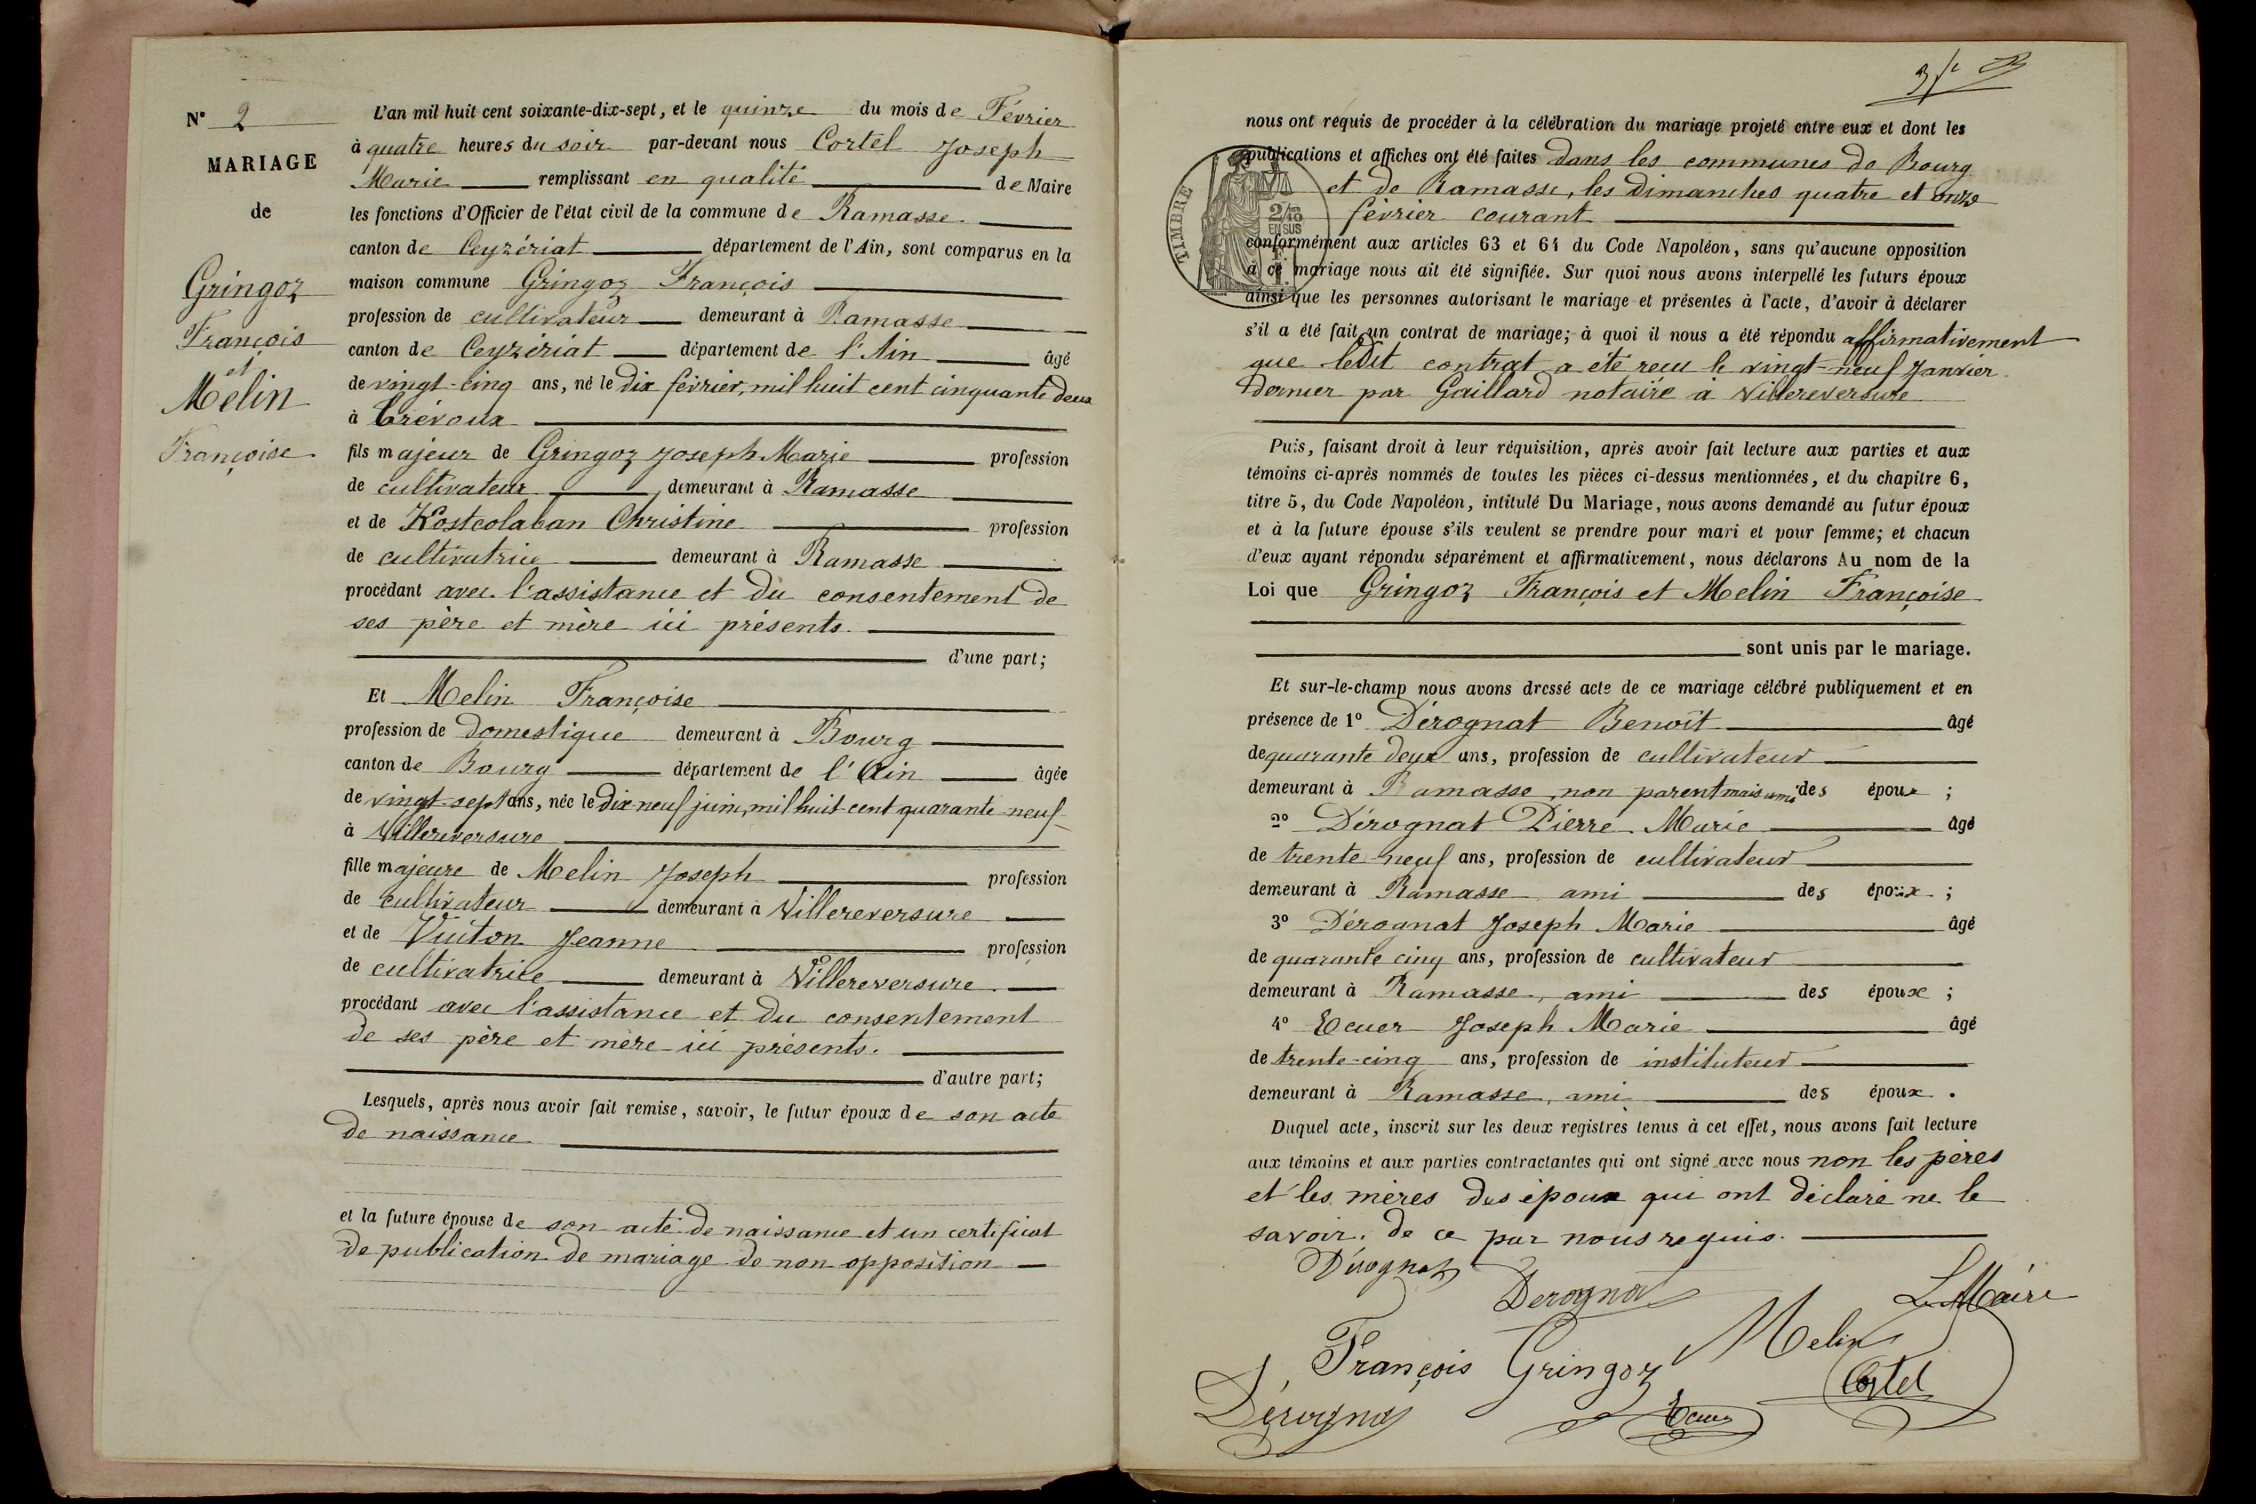 N° 2
MARIAGE
de
Gringoz
François
et
Melin
Françoise
L'an mil huit cent soixante-dix-sept, et le quinze du mois de Février
à quatre heures du soir par-devant nous Cortel Joseph
Marie remplissant en qualité de Maire
les fonctions d'Officier de l'état civil de la commune de Ramasse
canton de Ceyzériat département de l'Ain, sont comparus en la
maison commune Gringoz François
profession de cultivateur demeurant à Ramasse
canton de Ceyzériat département de l'Ain âgé
de vingt-cinq ans, né le dix février, mil huit cent cinquante deux
à Trévoux
fils majeur de Gringoz Joseph Marie profession
de cultivateur demeurant à Ramasse
et de Kosteolaban Christine profession
de cultivatrice demeurant à Ramasse
procédant avec l'assistance et du consentement de
ses père et mère ici présents.
d'une part;
Et Melin Françoise
profession de domestique demeurant à Bourg
canton de Bourg département de l'Ain âgée
de vingt-sept ans, née le dix-neuf juin, mil huit cent quarante-neuf
à Villereversure
fille majeure de Melin Joseph profession
de cultivateur demeurant à Villereversure
et de Vuiton Jeanne profession
de cultivatrice demeurant à Villereversure.
procédant avec l'assistance et du consentement
de ses père et mère ici présents.
d'autre part;
Lesquels, après nous avoir fait remise, savoir, le futur époux de son acte
de naissance
et la future épouse de son acte de naissance et un certificat
de publication de mariage de non opposition
nous ont requis de procéder à la célébration du mariage projeté entre eux et dont les
publications et affiches ont été faites dans les communes de Bourg
et de Ramasse, les dimanches quatre et onze
février courant
TIMBRE
2/10
EN SUS
conformément aux articles 63 et 64 du Code Napoléon, sans qu'aucune opposition
à ce mariage nous ait été signifiée. Sur quoi nous avons interpellé les futurs époux
ainsi que les personnes autorisant le mariage et présentes à l'acte, d'avoir à déclarer
s'il a été fait un contrat de mariage; à quoi il nous a été répondu affirmativement
que ledit contrat a été reçu le vingt-neuf Janvier
dernier par Gaillard notaire à Villereversure
Puis, faisant droit à leur réquisition, après avoir fait lecture aux parties et aux
témoins ci-après nommés de toutes les pièces ci-dessus mentionnées, et du chapitre 6,
titre 5, du Code Napoléon, intitulé Du Mariage, nous avons demandé au futur époux
et à la future épouse s'ils veulent se prendre pour mari et pour femme; et chacun
d'eux ayant répondu séparément et affirmativement, nous déclarons Au nom de la
Loi que Gringoz François et Melin Françoise
sont unis par le mariage.
Et sur-le-champ nous avons dressé acte de ce mariage célébré publiquement et en
présence de 1° Dérognat Benoît âgé
de quarante deux ans, profession de cultivateur
demeurant à Ramasse, non parent mais ami des époux ;
2° Dérognat Pierre Marie âgé
de trente-neuf ans, profession de cultivateur
demeurant à Ramasse ami des époux ;
3° Dérognat Joseph Marie âgé
de quarante cinq ans, profession de cultivateur
demeurant à Ramasse, ami des époux ;
4° Ecuer Joseph Marie âgé
de trente-cinq ans, profession de instituteur
demeurant à Ramasse, ami des époux .
Duquel acte, inscrit sur les deux registres tenus à cet effet, nous avons fait lecture
aux témoins et aux parties contractantes qui ont signé avec nous non les pères
et les mères des époux qui ont déclaré ne le
savoir. de ce par nous requis.
Dérognat
Derognat
Le Maire
François Gringoz
Melin
Cortel
Dérognat
Ecuer